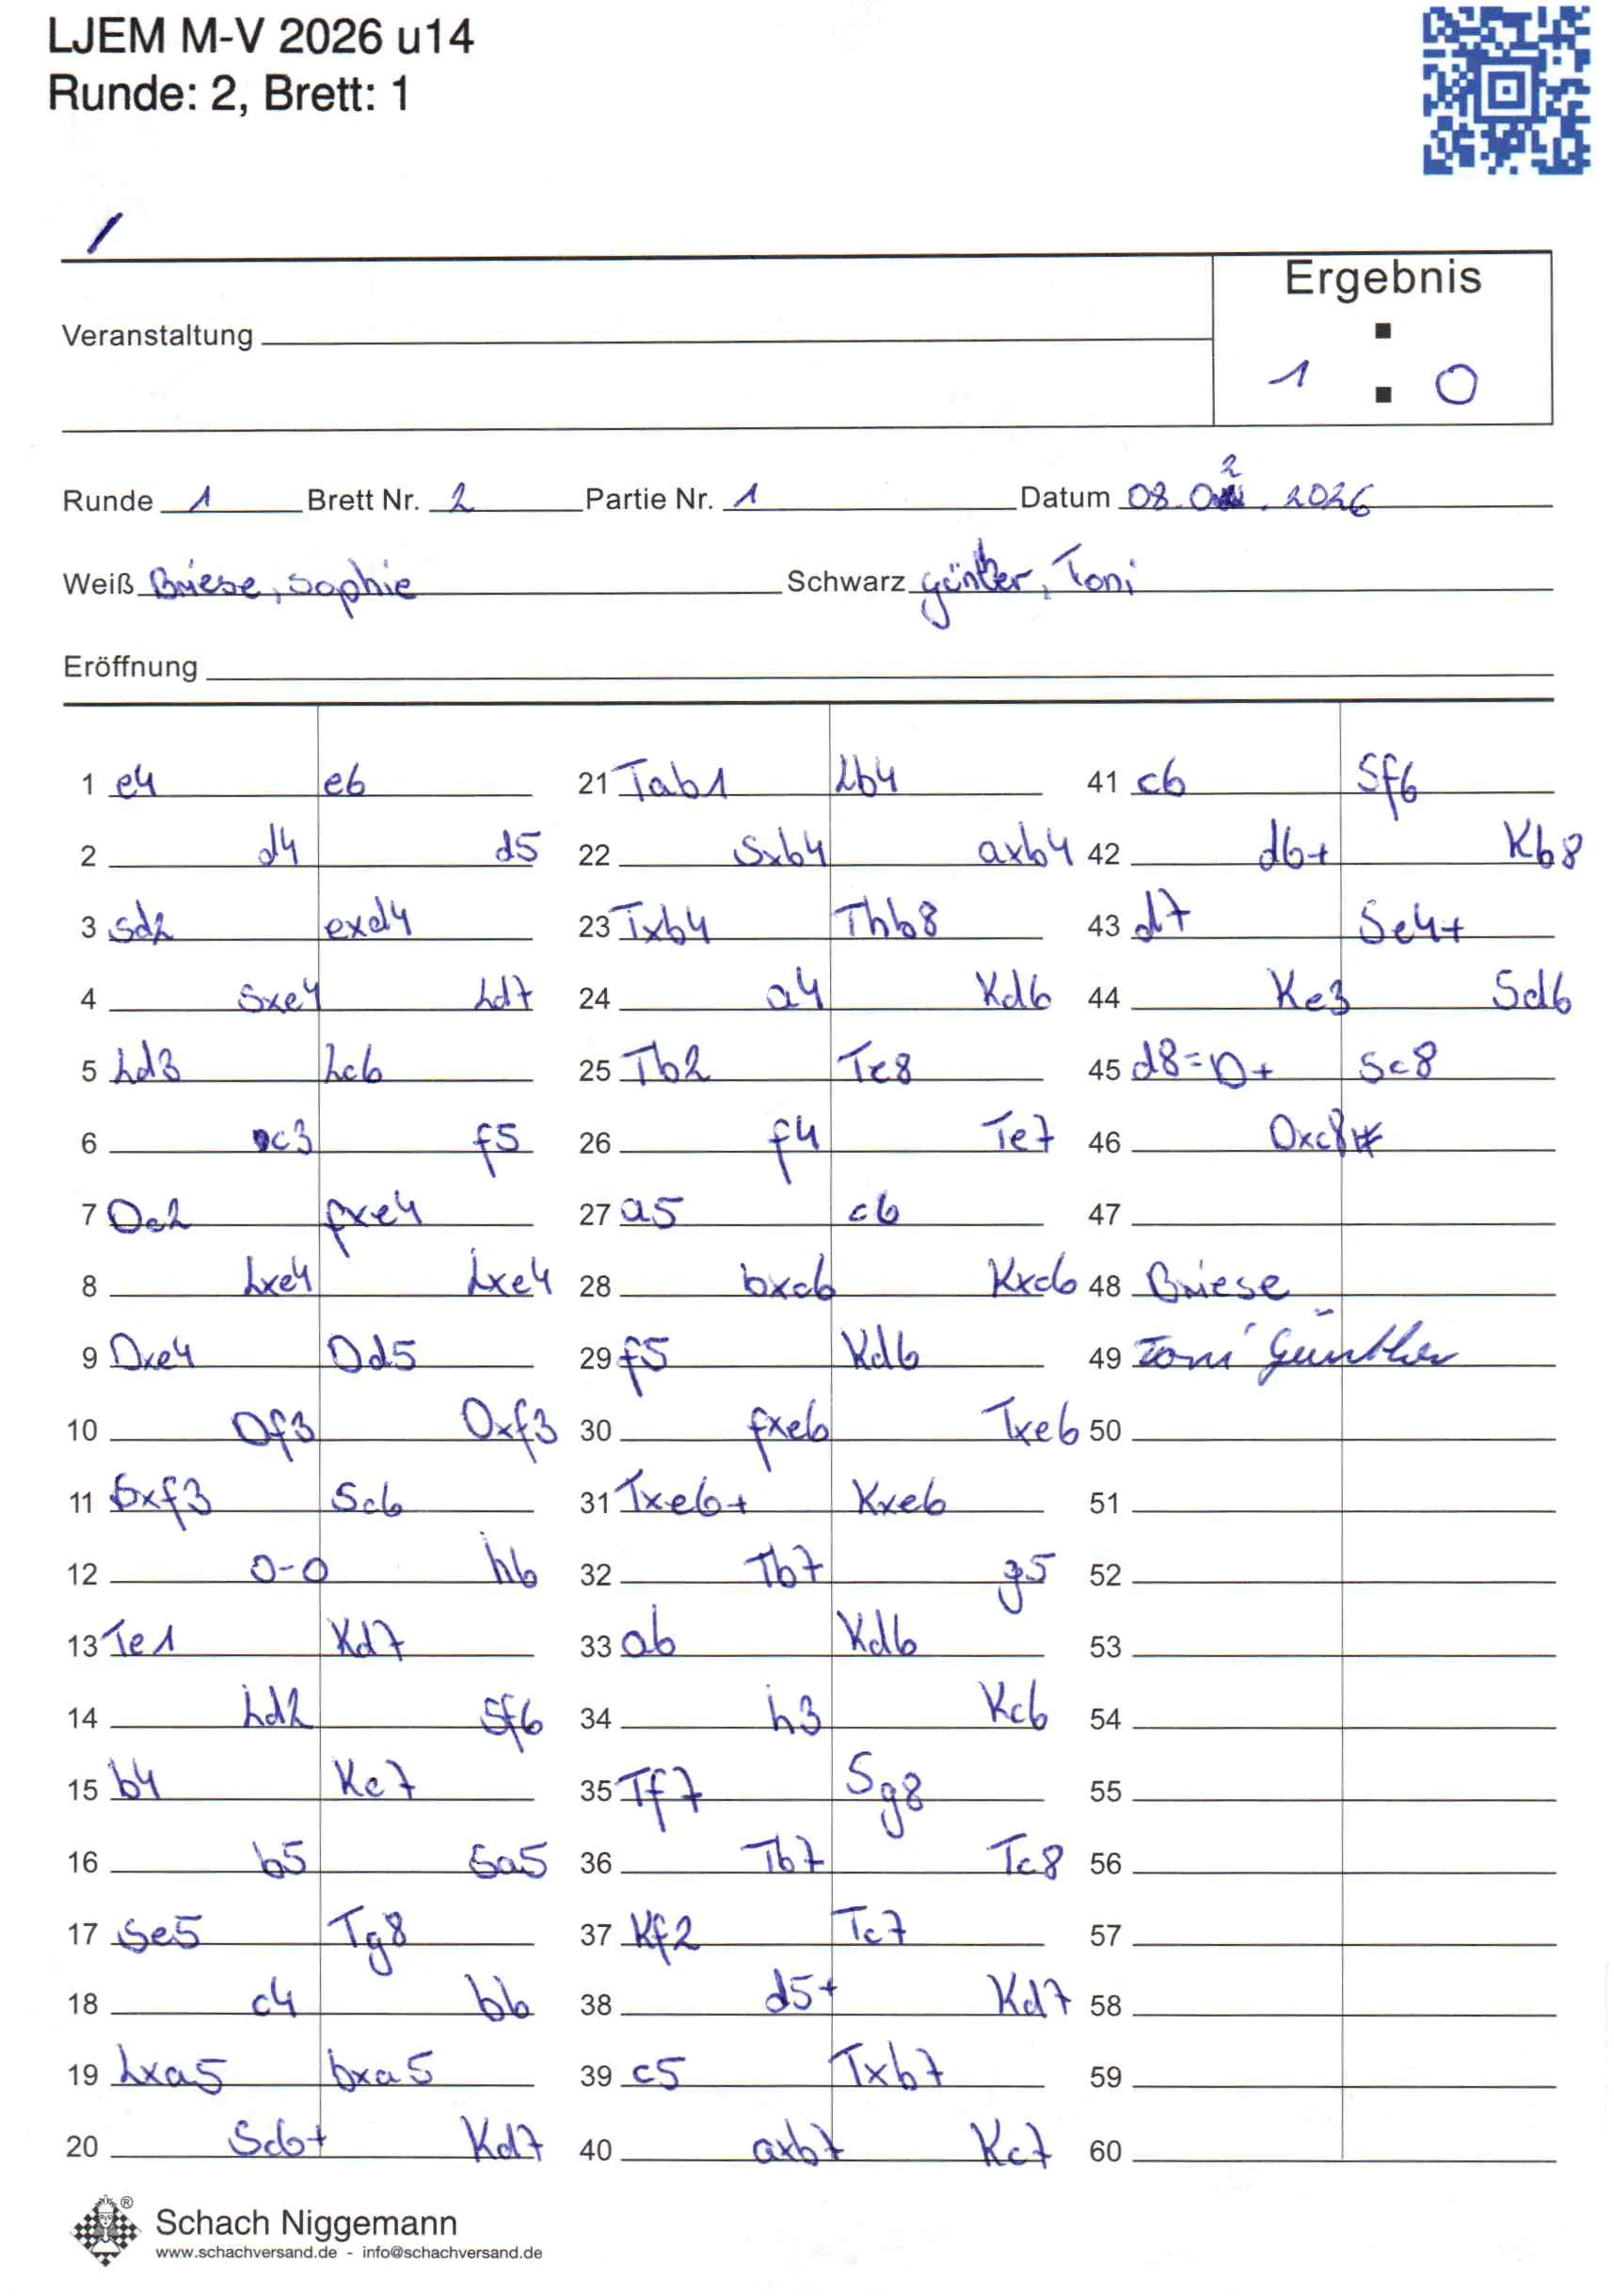 LJEM M-V 2026 u14
Runde: 2, Brett: 1
Ergebnis
Veranstaltung
1 : 0
Runde 1 Brett Nr. 2 Partie Nr. 1 Datum 08.02.2026
Weiß Briese, Sophie Schwarz Günther, Toni
Eröffnung
1 e4 e6 21 Tab1 Lb4 41 c6 Sf6
2 d4 d5 22 Sxb4 axb4 42 d6+ Kb8
3 Sd2 exd4 23 Txb4 Thb8 43 d7 Se4+
4 Sxe4 Ld7 24 a4 Kd6 44 Ke3 Sd6
5 Ld3 Lc6 25 Tb2 Te8 45 d8=D+ Sc8
6 c3 f5 26 f4 Te7 46 Dxc8#
7 Dc2 fxe4 27 a5 c6 47
8 Lxe4 Lxe4 28 bxc6 Kxc6 48 Briese
9 Dxe4 Dd5 29 f5 Kd6 49 Toni Günther
10 Df3 Dxf3 30 fxe6 Txe6 50
11 Sxf3 Sc6 31 Txe6+ Kxe6 51
12 0-0 h6 32 Tb7 g5 52
13 Te1 Kd7 33 a6 Kd6 53
14 Ld2 Sf6 34 h3 Kc6 54
15 b4 Ke7 35 Tf7 Sg8 55
16 b5 Sa5 36 Tb7 Tc8 56
17 Se5 Tg8 37 Kf2 Tc7 57
18 c4 b6 38 d5+ Kd7 58
19 Lxa5 bxa5 39 c5 Txb7 59
20 Sc6+ Kd7 40 axb7 Kc7 60
Schach Niggemann
www.schachversand.de - info@schachversand.de